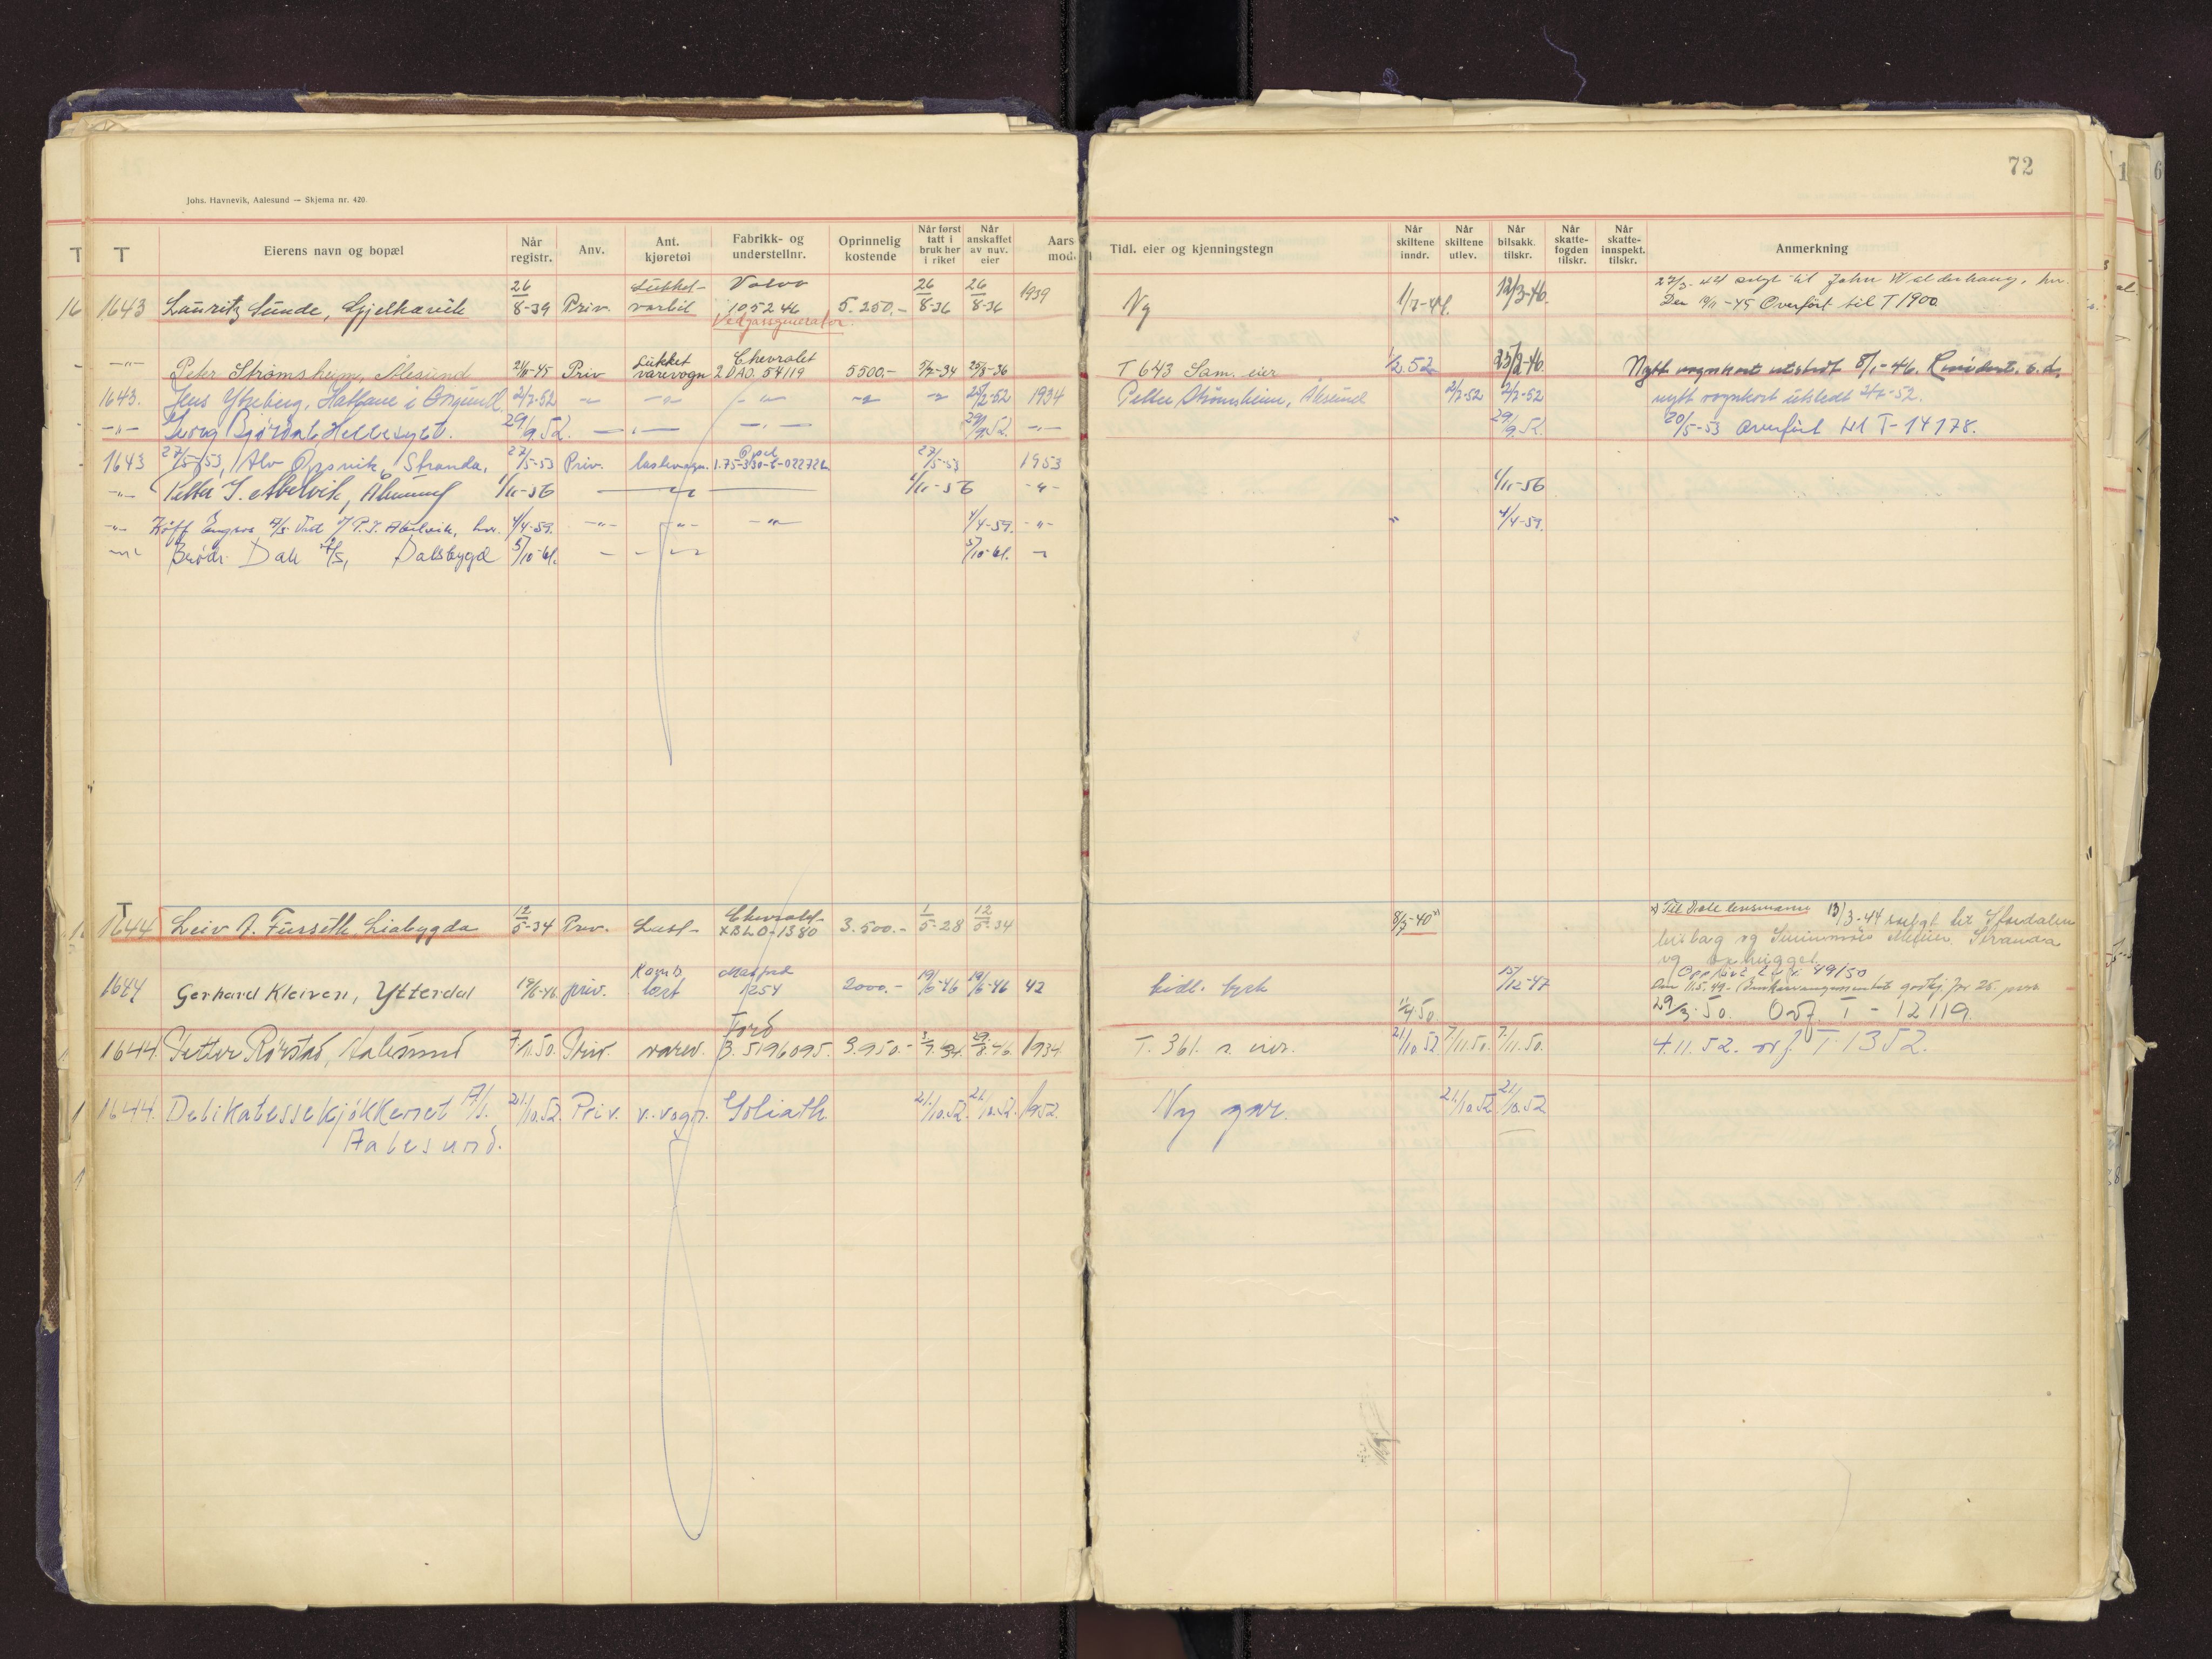 72
Johs. Havnevik, Aalesund — Skjema nr. 420.
T T Eierens navn og bopæl Når registr. Anv. Ant. kjøretøi Fabrikk- og understellnr. Oprinnelig kostende Når først tatt i bruk her i riket Når anskaffet av nuv. eier Aars mod. Tidl. eier og kjenningstegn Når skiltene inndr. Når skiltene utlev. Når bilsakk. tilskr. Når skattefogden tilskr. Når skatteinnspekt. tilskr. Anmerkning
16 1643 Lauritz Sunde, Gjelkavik 26/8-39 Priv. Lukket varbil Volvo 105246 5.250.- 26/8-36 26/8-36 1939 Ny 1/3-44. 12/3-46. 27/3-44 solgt til John Walderhaug, hr.
Vedgassgenerator.
Den 19/11-45 Overført til T 1900
—"— Peter Strømsheim, Ålesund 21/11-45 Priv Lukket varevogn Chevrolet 2 DAO. 54119 5500.- 3/7-34 25/8-36 T 643 Sam. eier 1/2.52 25/2-46. Nytt vognkort utstedt 8/1-46.
1643. Jens Ytreberg, Hatlane i Ørsund. 2/2-52 2/2-52 1934 Petter Strømsheim, Ålesund 2/2-52 2/2-52 nytt vognkort utstedt 2/2-52.
—"— Georg Bjørdal, Hellesylt. 29/9.52. —"— —"— 29/9.52. —"— 29/9.52. 20/5-53 overført til T-14178.
1643 27/5-53, Alv Opsvik, Stranda, 27/5-53 Priv. lastevogn. Opel 1.75-330-L-022722 27/5-53 1953
—"— Petter J. Abelvik, Ålesund 1/11-56 1/11-56 —"— 1/11-56
—"— Køff Engros A/S Ved P. J. Abelvik, her. 4/4-59. —"— —"— —"— 4/4-59. —"— 4/4-59.
—"— Brødr. Dale A/S, Dalsbygd 5/10-61. 5/10-61.
T
1644 Leiv A. Furseth, Liabygda 12/5-34 Priv. Last- Chevrolet XBLO-1380 3.500.- 1/5-28 12/5-34 8/5-40 x) Til Dale lensmann 13/3-44 solgt til
og Meieri Stranda
og opphugget.
1644 Gerhard Kleiven, Ytterdal 19/6-46 priv. Komb. last 1254 2000.- 19/6-46 19/6-46 42 tidl. tysk 15/12-47 49/50
Den 11.5.49. godkj. for 25 pers
1/4.50 29/3.50. Ovf. T - 12119.
1644. Petter Rørstad, Aalesund 7.11.50. Priv. varev. Ford B. 5196095. 3.950.- 3/7.34. 29/8.46 1934 T. 361. s. eier. 21/10.52 7/11.50. 7/11.50. 4.11.52. ovf. T-1352.
1644. Delikatessekjøkkenet A/S. 21/10.52. Priv. v.vogn. Goliath 21/10.52. 21/10.52. 1952. Ny gar. 21/10.52 21/10.52
Aalesund.